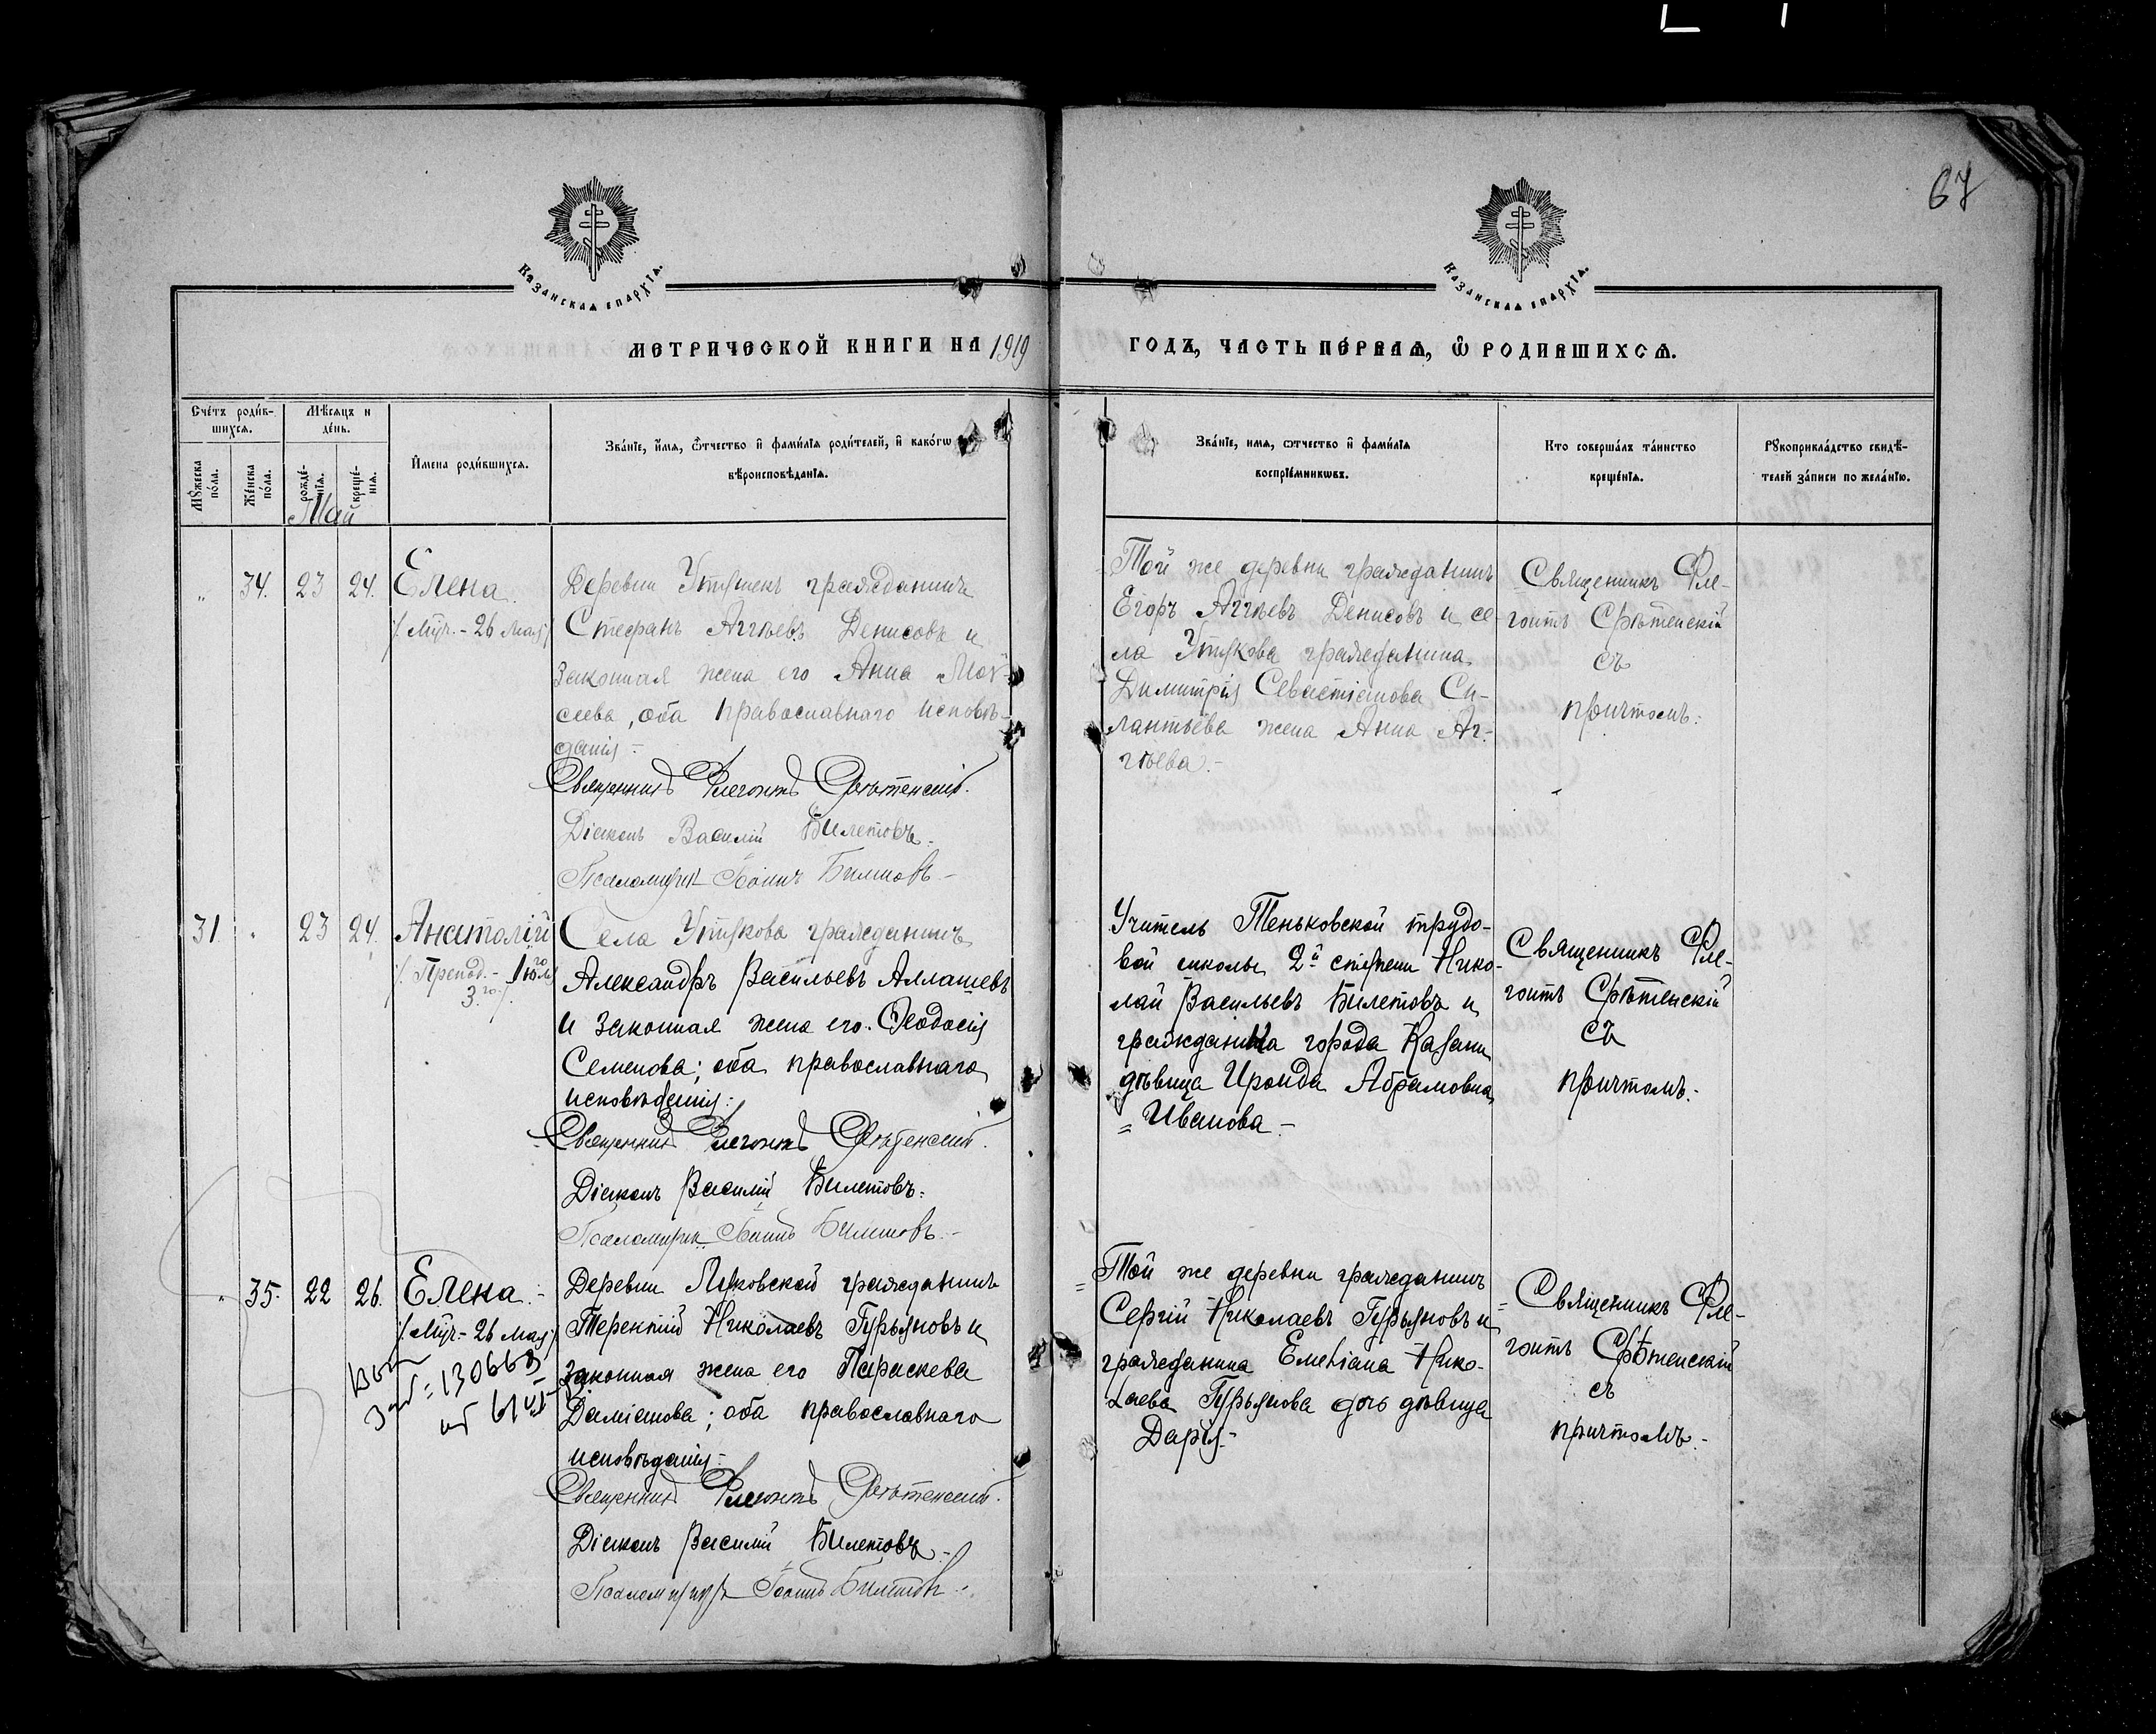 67
Казанская епархїѧ.
Казанская епархїѧ.
МЕТРИЧЕСКОЙ КНИГИ НА 1919
ГОДЪ, ЧАСТЬ ПЕ́РВАѦ, Ѽ РОДИВШИХСѦ.
Сче́тъ роди́в-
шихсѧ.
Мѣ́сѧцъ и
де́нь.
Мꙋ́жеска
по́ла.
Же́нска
по́ла.
рожде́-
нїѧ.
креще́-
нїѧ.
И҆мена роди́вшихсѧ.
Зва́нїе, и҆́мѧ, ѻ҆́тчество и҆ фами́лїѧ роди́телей, и҆ како́гѡ
вѣроисповѣ́данїѧ.
Зва́нїе, имѧ, ѻтчество и҆ фами́лїѧ
воспрїе́мникѡвъ.
Кто соверша́лъ та́инство
креще́нїѧ.
Рꙋкоприкла́дство свидѣ́-
телей за́писи по жела́нїю.
Май
„ 34. 23 24. Елена
/. Муч. - 26 мая/
Деревни Утяшекъ гражданинъ
Стефанъ Аггѣевъ Денисовъ и
законная жена его Анна Мои-
сеева, оба православнаго исповѣ-
данiя -
Священникъ Флегонтъ Срѣтенскiй.
Дiаконъ Василiй Билетовъ.
Псаломщикъ Iоаннъ Билетовъ -
Той же деревни гражданинъ
Егоръ Аггѣевъ Денисовъ и се-
ла Утякова гражданина
Димитрiя Севастiанова Си-
лантьева жена Анна Аг-
гѣева. -
Священникъ Фле-
гонтъ Срѣтенскiй
съ
причтомъ.
31 „ 23 24. Анатолiй
/. Препод. - Iюля
3.го/.
Села Утякова гражданинъ
Александръ Васильевъ Аллашевъ
и законная жена его Ѳеодосiя
Семенова; оба православнаго
исповѣданiя:
Священникъ Флегонтъ Срѣтенскiй.
Дiаконъ Василiй Билетовъ.
Псаломщикъ Iоаннъ Билетовъ. -
Учитель Теньковской трудо-
вой школы 2й ступени Нико-
лай Васильевъ Билетовъ и
гражданка города Казани
дѣвица Ираида Абрамовна
= Иванова -
Священникъ Фле-
гонтъ Срѣтенскiй
съ
причтомъ. -
„ 35. 22 26. Елена. -
/. Муч. - 26 мая/
130663
Деревни Лужовской гражданинъ
Терентiй Николаевъ Гурьяновъ и
законная жена его Параскева
Дамiанова; оба православнаго
исповѣданiя -
Священникъ Флегонтъ Срѣтенскiй.
Дiаконъ Василiй Билетовъ -
Псаломщикъ Iоаннъ Билетовъ. -
= Той же деревни гражданинъ
Сергiй Николаевъ Гурьяновъ и
гражданина Емелiана Нико-
лаева Гурьянова дочь дѣвица
Дарiя -
= Священникъ Фле-
гонтъ Срѣтенскiй
съ
причтомъ. -